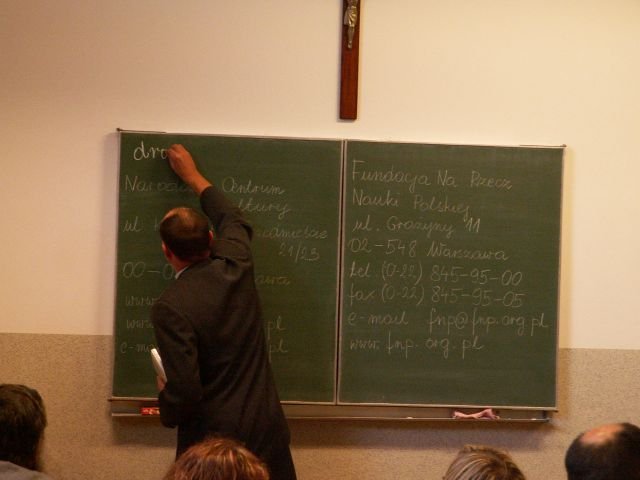 dro
Centrum
ul
21/23
00-0
www
pl
e-ma pl
Fundacja Na Rzecz
Nauki Polskiej
ul. Grażyny 11
02-548 Warszawa
tel (0-22) 845-95-00
fax (0-22) 845-95-05
e-mail fnp@fnp.org.pl
www.fnp.org.pl